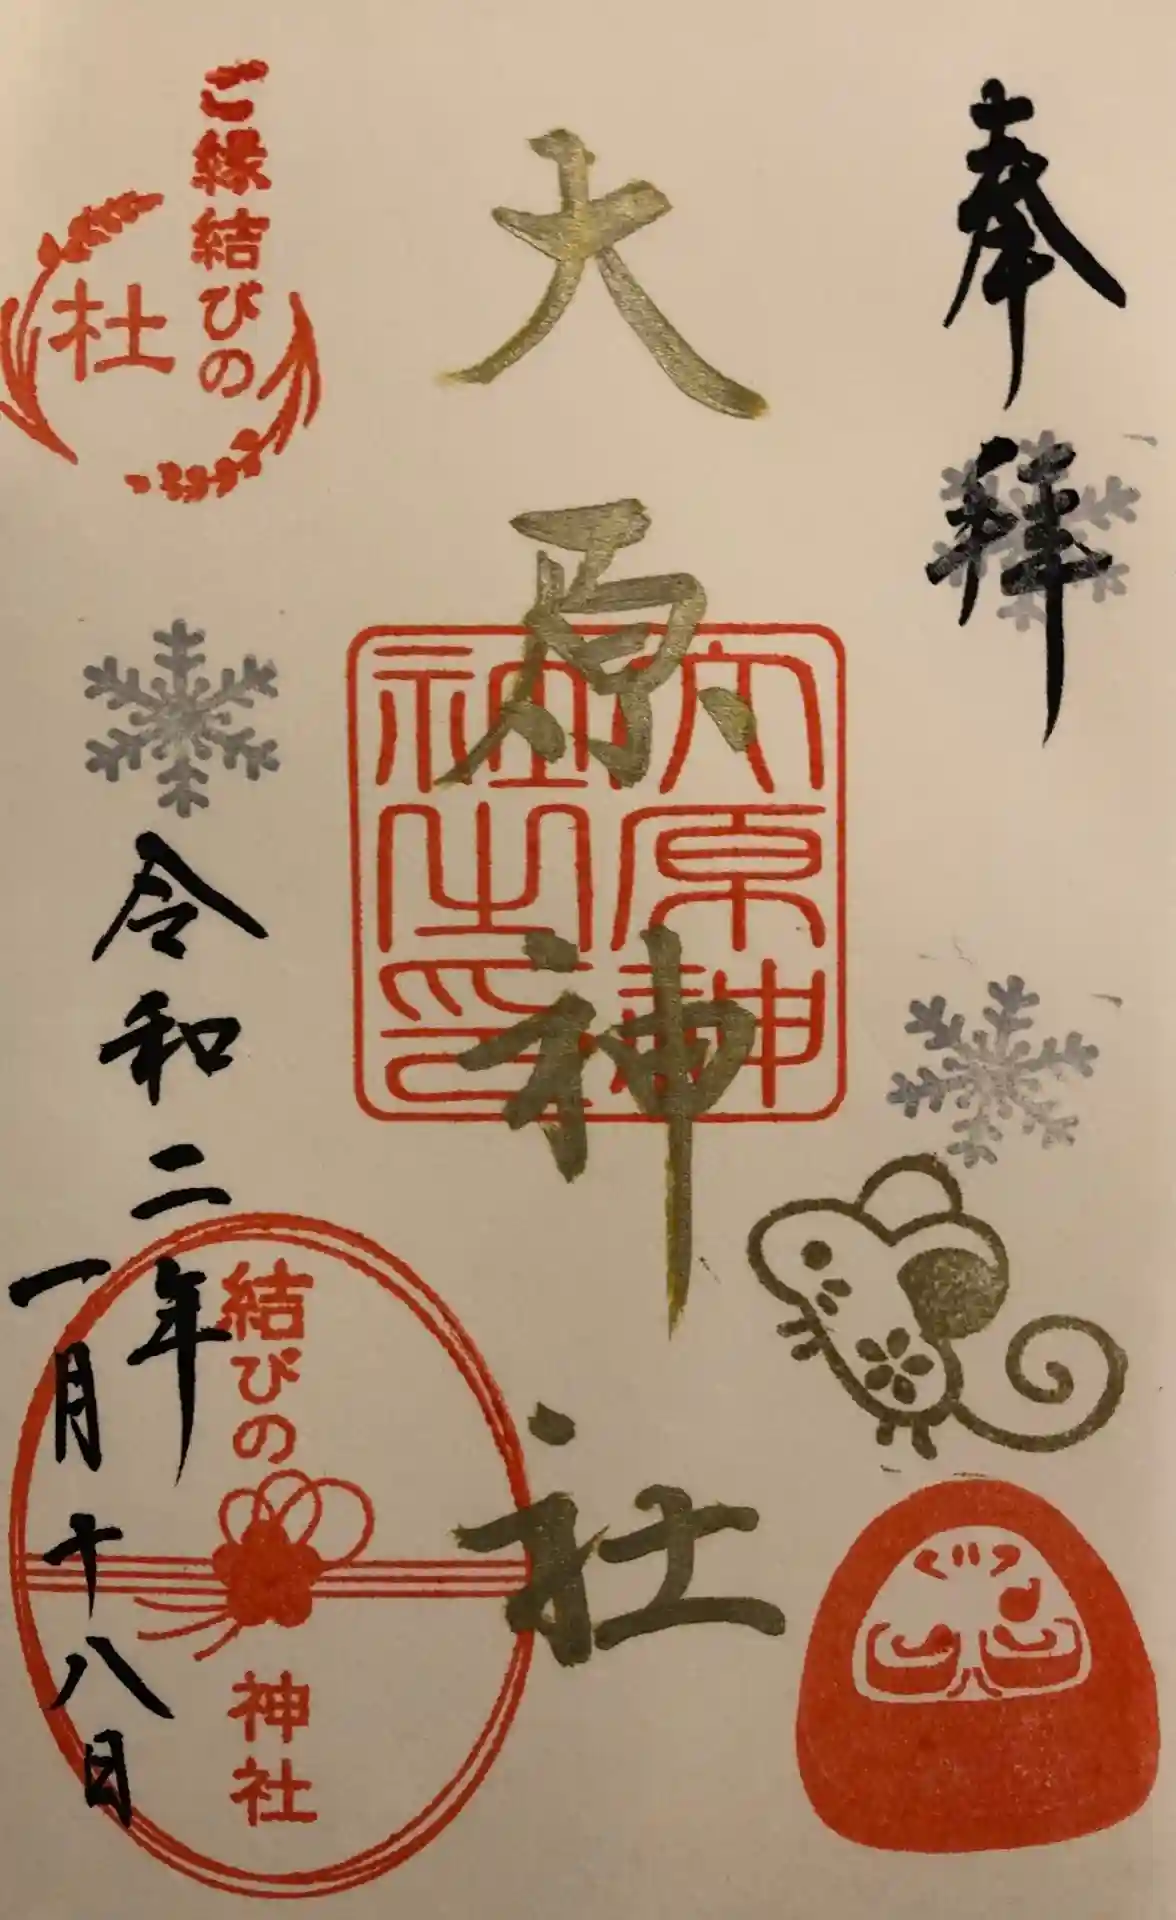 奉拝
大原神社
大原神社之印
ご縁結びの
杜
令和二年
一月十八日
結びの
神社